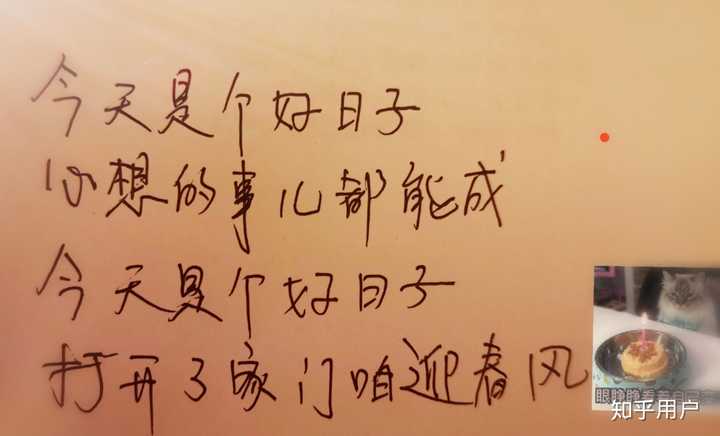 今天是个好日子
心想的事儿都能成
今天是个好日子
打开了家门咱迎春风
眼睁睁看着自己
知乎用户